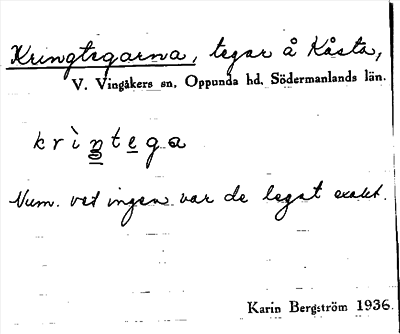 Kringtegarna, tegar å Kåsta,
V. Vingåkers sn, Oppunda hd, Södermanlands län.
krìntega
Num. vet ingen var de legat exakt.
Karin Bergström 1936.